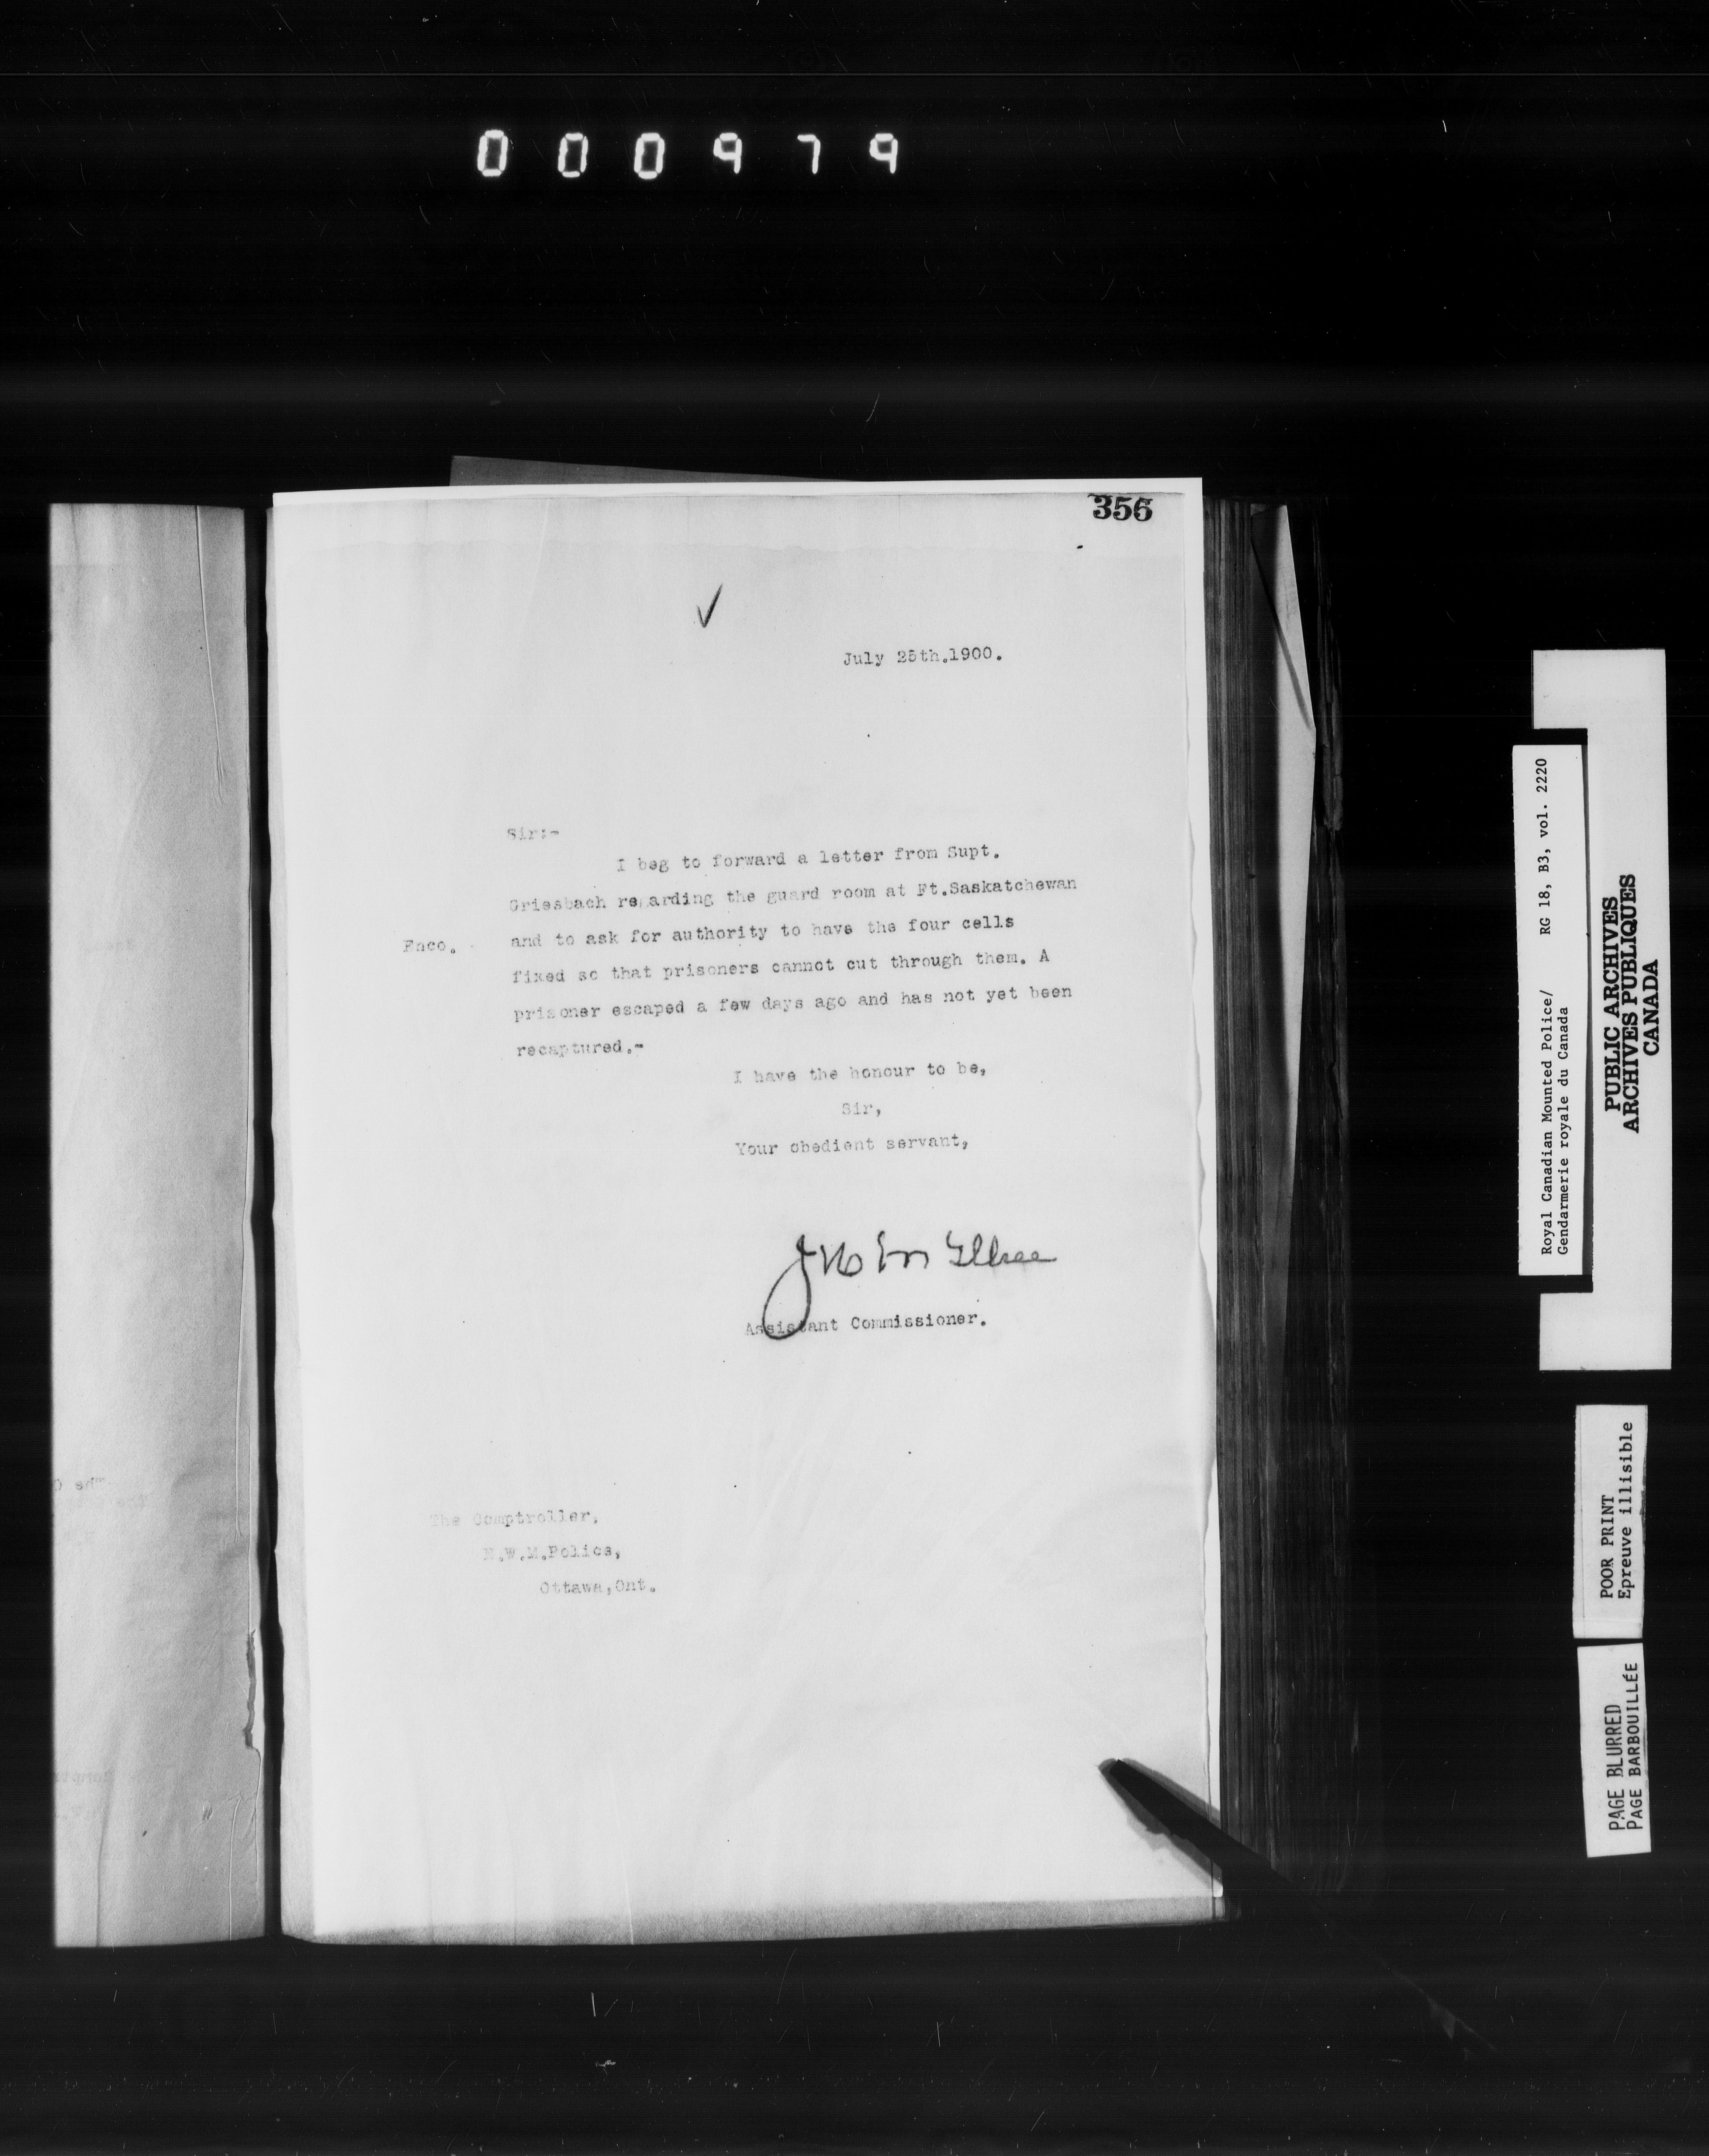 000979
356
✓
July 25th.1900.
Sir:-
I beg to forward a letter from Supt.
Griesbach regarding the guard room at Ft.Saskatchewan
Enco. and to ask for authority to have the four cells
fixed so that prisoners cannot cut through them. A
prisoner escaped a few days ago and has not yet been
recaptured.-
I have the honour to be,
Sir,
Your obedient servant,
J H McIllree
Assistant Commissioner.
The Comptroller,
N.W.M.Police,
Ottawa,Ont.
Royal Canadian Mounted Police/ RG 18, B3, vol. 2220
Gendarmerie royale du Canada
PUBLIC ARCHIVES
ARCHIVES PUBLIQUES
CANADA
POOR PRINT
Epreuve illisible
PAGE BLURRED
PAGE BARBOUILLÉE